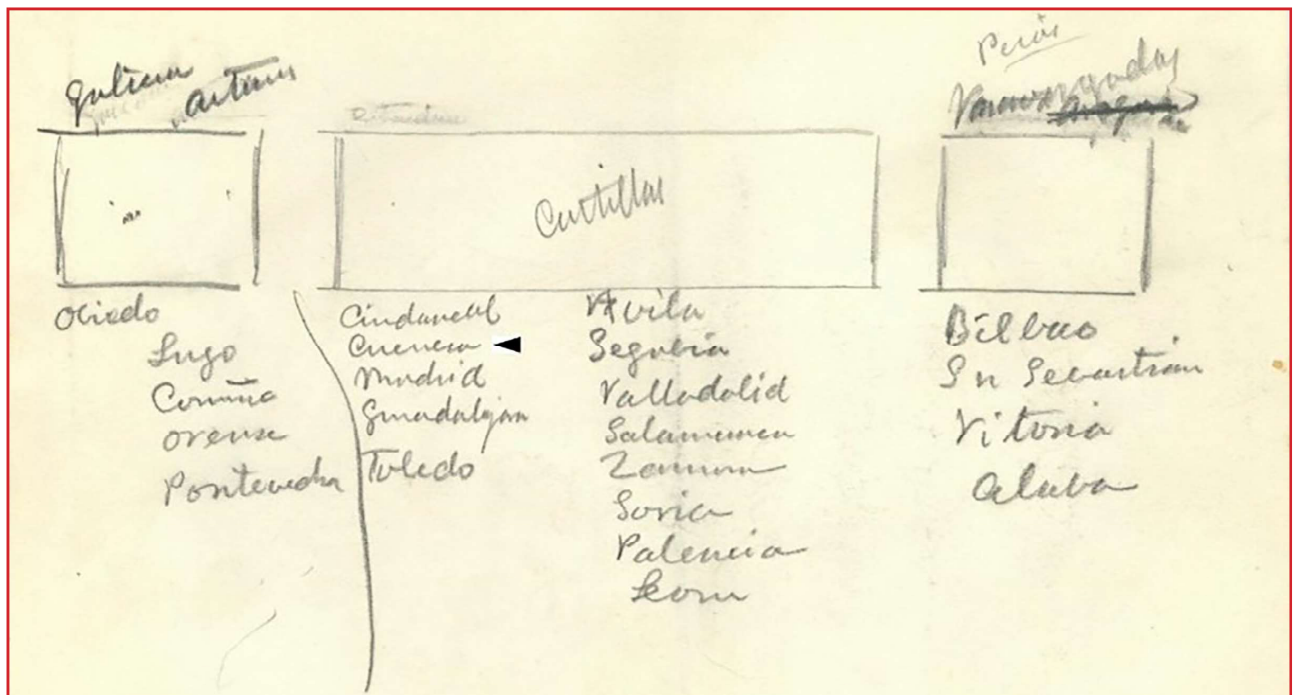 Galicia
Asturias
Castillas
Vascongadas
Obiedo
Lugo
Coruña
Orense
Pontevedra
Ciudareal
Cuenca
Madrid
Guadalajara
Toledo
Avila
Segobia
Valladolid
Salamanca
Zamora
Soria
Palencia
Leon
Bilbao
Sn Sebastián
Vitoria
Alaba